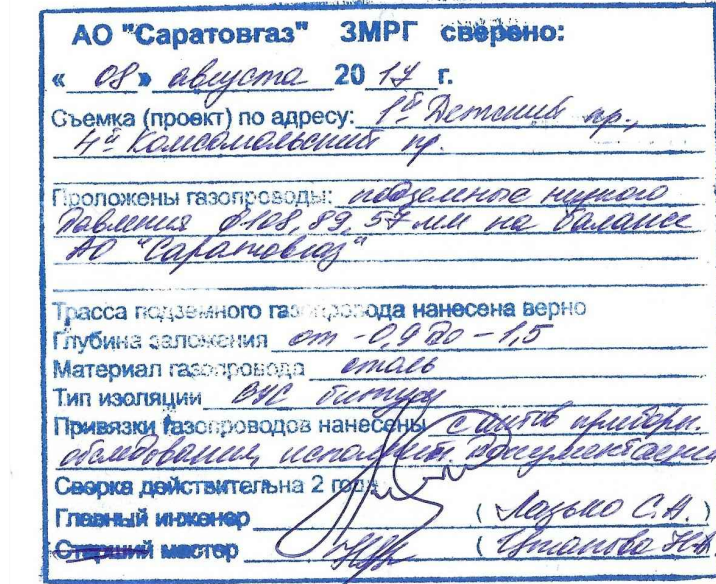 АО "Саратовгаз" ЗМРГ сверено:
« 08 » августа 20 17 г.
Съемка (проект) по адресу: 1й Детский пр.,
4й Комсомольский пр.
Проложены газопроводы: подземные низкого
давления ф108, 89, 57 мм на балансе
АО "Саратовгаз"
Трасса подземного газопровода нанесена верно
Глубина заложения от -0,9 до -1,5
Материал газопровода сталь
Тип изоляции ВУС битум
Привязки газопроводов нанесены с актов прибора.
обследования, исполнит. документации
Сверка действительна 2 года
Главный инженер ( С.А. )
Старший мастер ( Н.А.